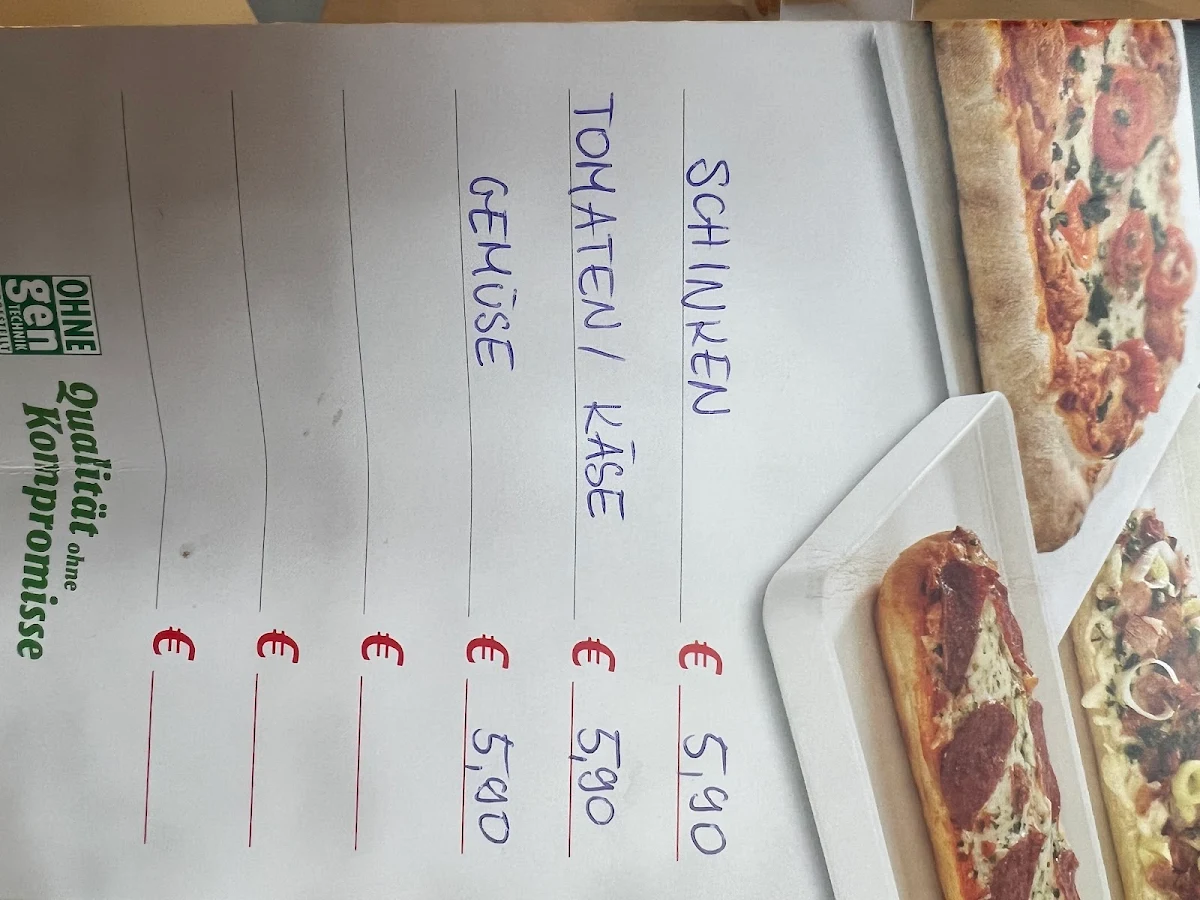 SCHINKEN € 5,90
TOMATEN / KÄSE € 5,90
GEMÜSE € 5,90
€
€
€
OHNE
gen
TECHNIK
Qualität ohne
Kompromisse